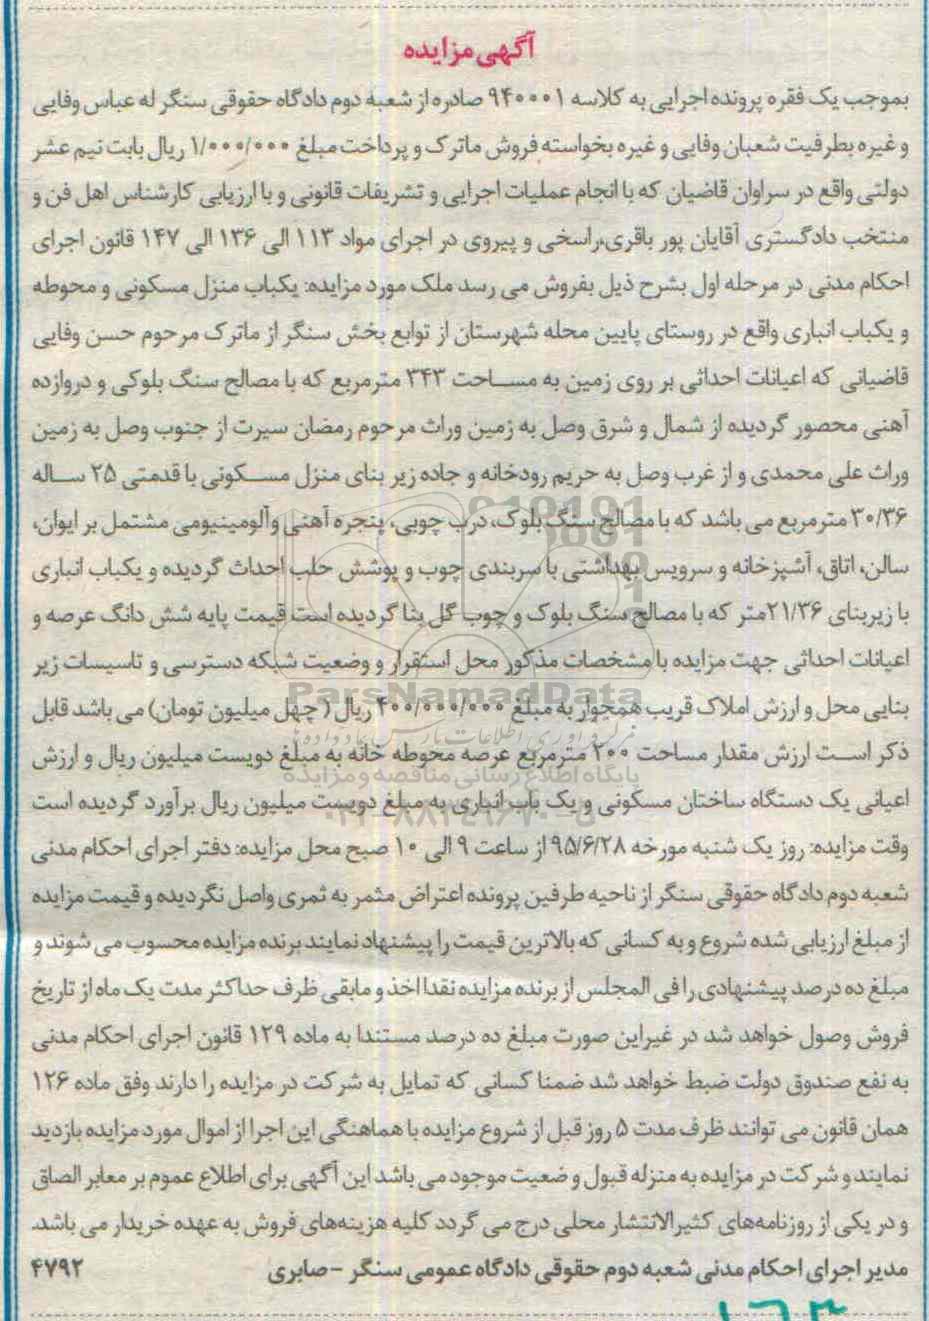 آگهی مزایده
بموجب یک فقره پرونده اجرایی به کلاسه ۹۴۰۰۰۱ صادره از شعبه دوم دادگاه حقوقی سنگر له عباس وفایی
و غیره بطرفیت شعبان وفایی و غیره بخواسته فروش ماترک و پرداخت مبلغ ۱/۰۰۰/۰۰۰ ریال بابت نیم عشر
دولتی واقع در سراوان قاضیان که با انجام عملیات اجرایی و تشریفات قانونی و با ارزیابی کارشناس اهل فن و
منتخب دادگستری آقایان پور باقری،راسخی و پیروی در اجرای مواد ۱۱۳ الی ۱۳۶ الی ۱۴۷ قانون اجرای
احکام مدنی در مرحله اول بشرح ذیل بفروش می رسد ملک مورد مزایده: یکباب منزل مسکونی و محوطه
و یکباب انباری واقع در روستای پایین محله شهرستان از توابع بخش سنگر از ماترک مرحوم حسن وفایی
قاضیانی که اعیانات احداثی بر روی زمین به مساحت ۳۴۳ مترمربع که با مصالح سنگ بلوکی و دروازده
آهنی محصور گردیده از شمال و شرق وصل به زمین وراث مرحوم رمضان سیرت از جنوب وصل به زمین
وراث علی محمدی و از غرب وصل به حریم رودخانه و جاده زیر بنای منزل مسکونی با قدمتی ۲۵ ساله
۳۰/۳۶ مترمربع می باشد که با مصالح سنگ بلوک، درب چوبی، پنجره آهنی وآلومینیومی مشتمل بر ایوان،
سالن، اتاق، آشپزخانه و سرویس بهداشتی با سربندی چوب و پوشش حلب احداث گردیده و یکباب انباری
با زیربنای ۲۱/۳۶متر که با مصالح سنگ بلوک و چوب گل بنا گردیده است قیمت پایه شش دانگ عرصه و
اعیانات احداثی جهت مزایده با مشخصات مذکور محل استقرار و وضعیت شبکه دسترسی و تاسیسات زیر
بنایی محل و ارزش املاک قریب همجوار به مبلغ ۴۰۰/۰۰۰/۰۰۰ ریال ( چهل میلیون تومان) می باشد قابل
ParsNamadData
ذکر است ارزش مقدار مساحت ۲۰۰ مترمربع عرصه محوطه خانه به مبلغ دویست میلیون ریال و ارزش
پایگاه اطلاع رسانی مناقصه و مزایده
اعیانی یک دستگاه ساختان مسکونی و یک باب انباری به مبلغ دویست میلیون ریال برآورد گردیده است
وقت مزایده: روز یک شنبه مورخه ۹۵/۶/۲۸ از ساعت ۹ الی ۱۰ صبح محل مزایده: دفتر اجرای احکام مدنی
شعبه دوم دادگاه حقوقی سنگر از ناحیه طرفین پرونده اعتراض مثمر به ثمری واصل نگردیده و قیمت مزایده
از مبلغ ارزیابی شده شروع و به کسانی که بالاترین قیمت را پیشنهاد نمایند برنده مزایده محسوب می شوند و
مبلغ ده درصد پیشنهادی را فی المجلس از برنده مزایده نقدا اخذ و مابقی ظرف حداکثر مدت یک ماه از تاریخ
فروش وصول خواهد شد در غیراین صورت مبلغ ده درصد مستندا به ماده ۱۲۹ قانون اجرای احکام مدنی
به نفع صندوق دولت ضبط خواهد شد ضمنا کسانی که تمایل به شرکت در مزایده را دارند وفق ماده ۱۲۶
همان قانون می توانند ظرف مدت ۵ روز قبل از شروع مزایده با هماهنگی این اجرا از اموال مورد مزایده بازدید
نمایند و شرکت در مزایده به منزله قبول وضعیت موجود می باشد این آگهی برای اطلاع عموم بر معابر الصاق
و در یکی از روزنامه‌های کثیرالانتشار محلی درج می گردد کلیه هزینه‌های فروش به عهده خریدار می باشد.
مدیر اجرای احکام مدنی شعبه دوم حقوقی دادگاه عمومی سنگر – صابری ۴۷۹۲